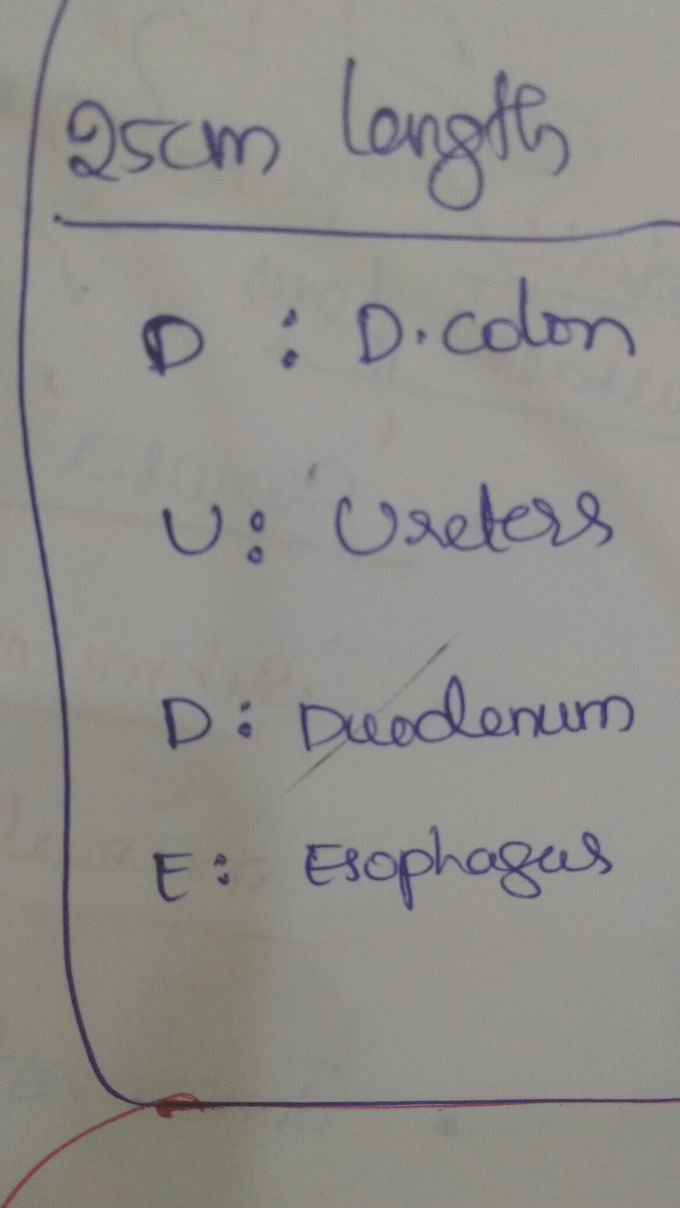 25cm length
D : D. colon
U : Ureters
D : Duodenum
E : Esophagus